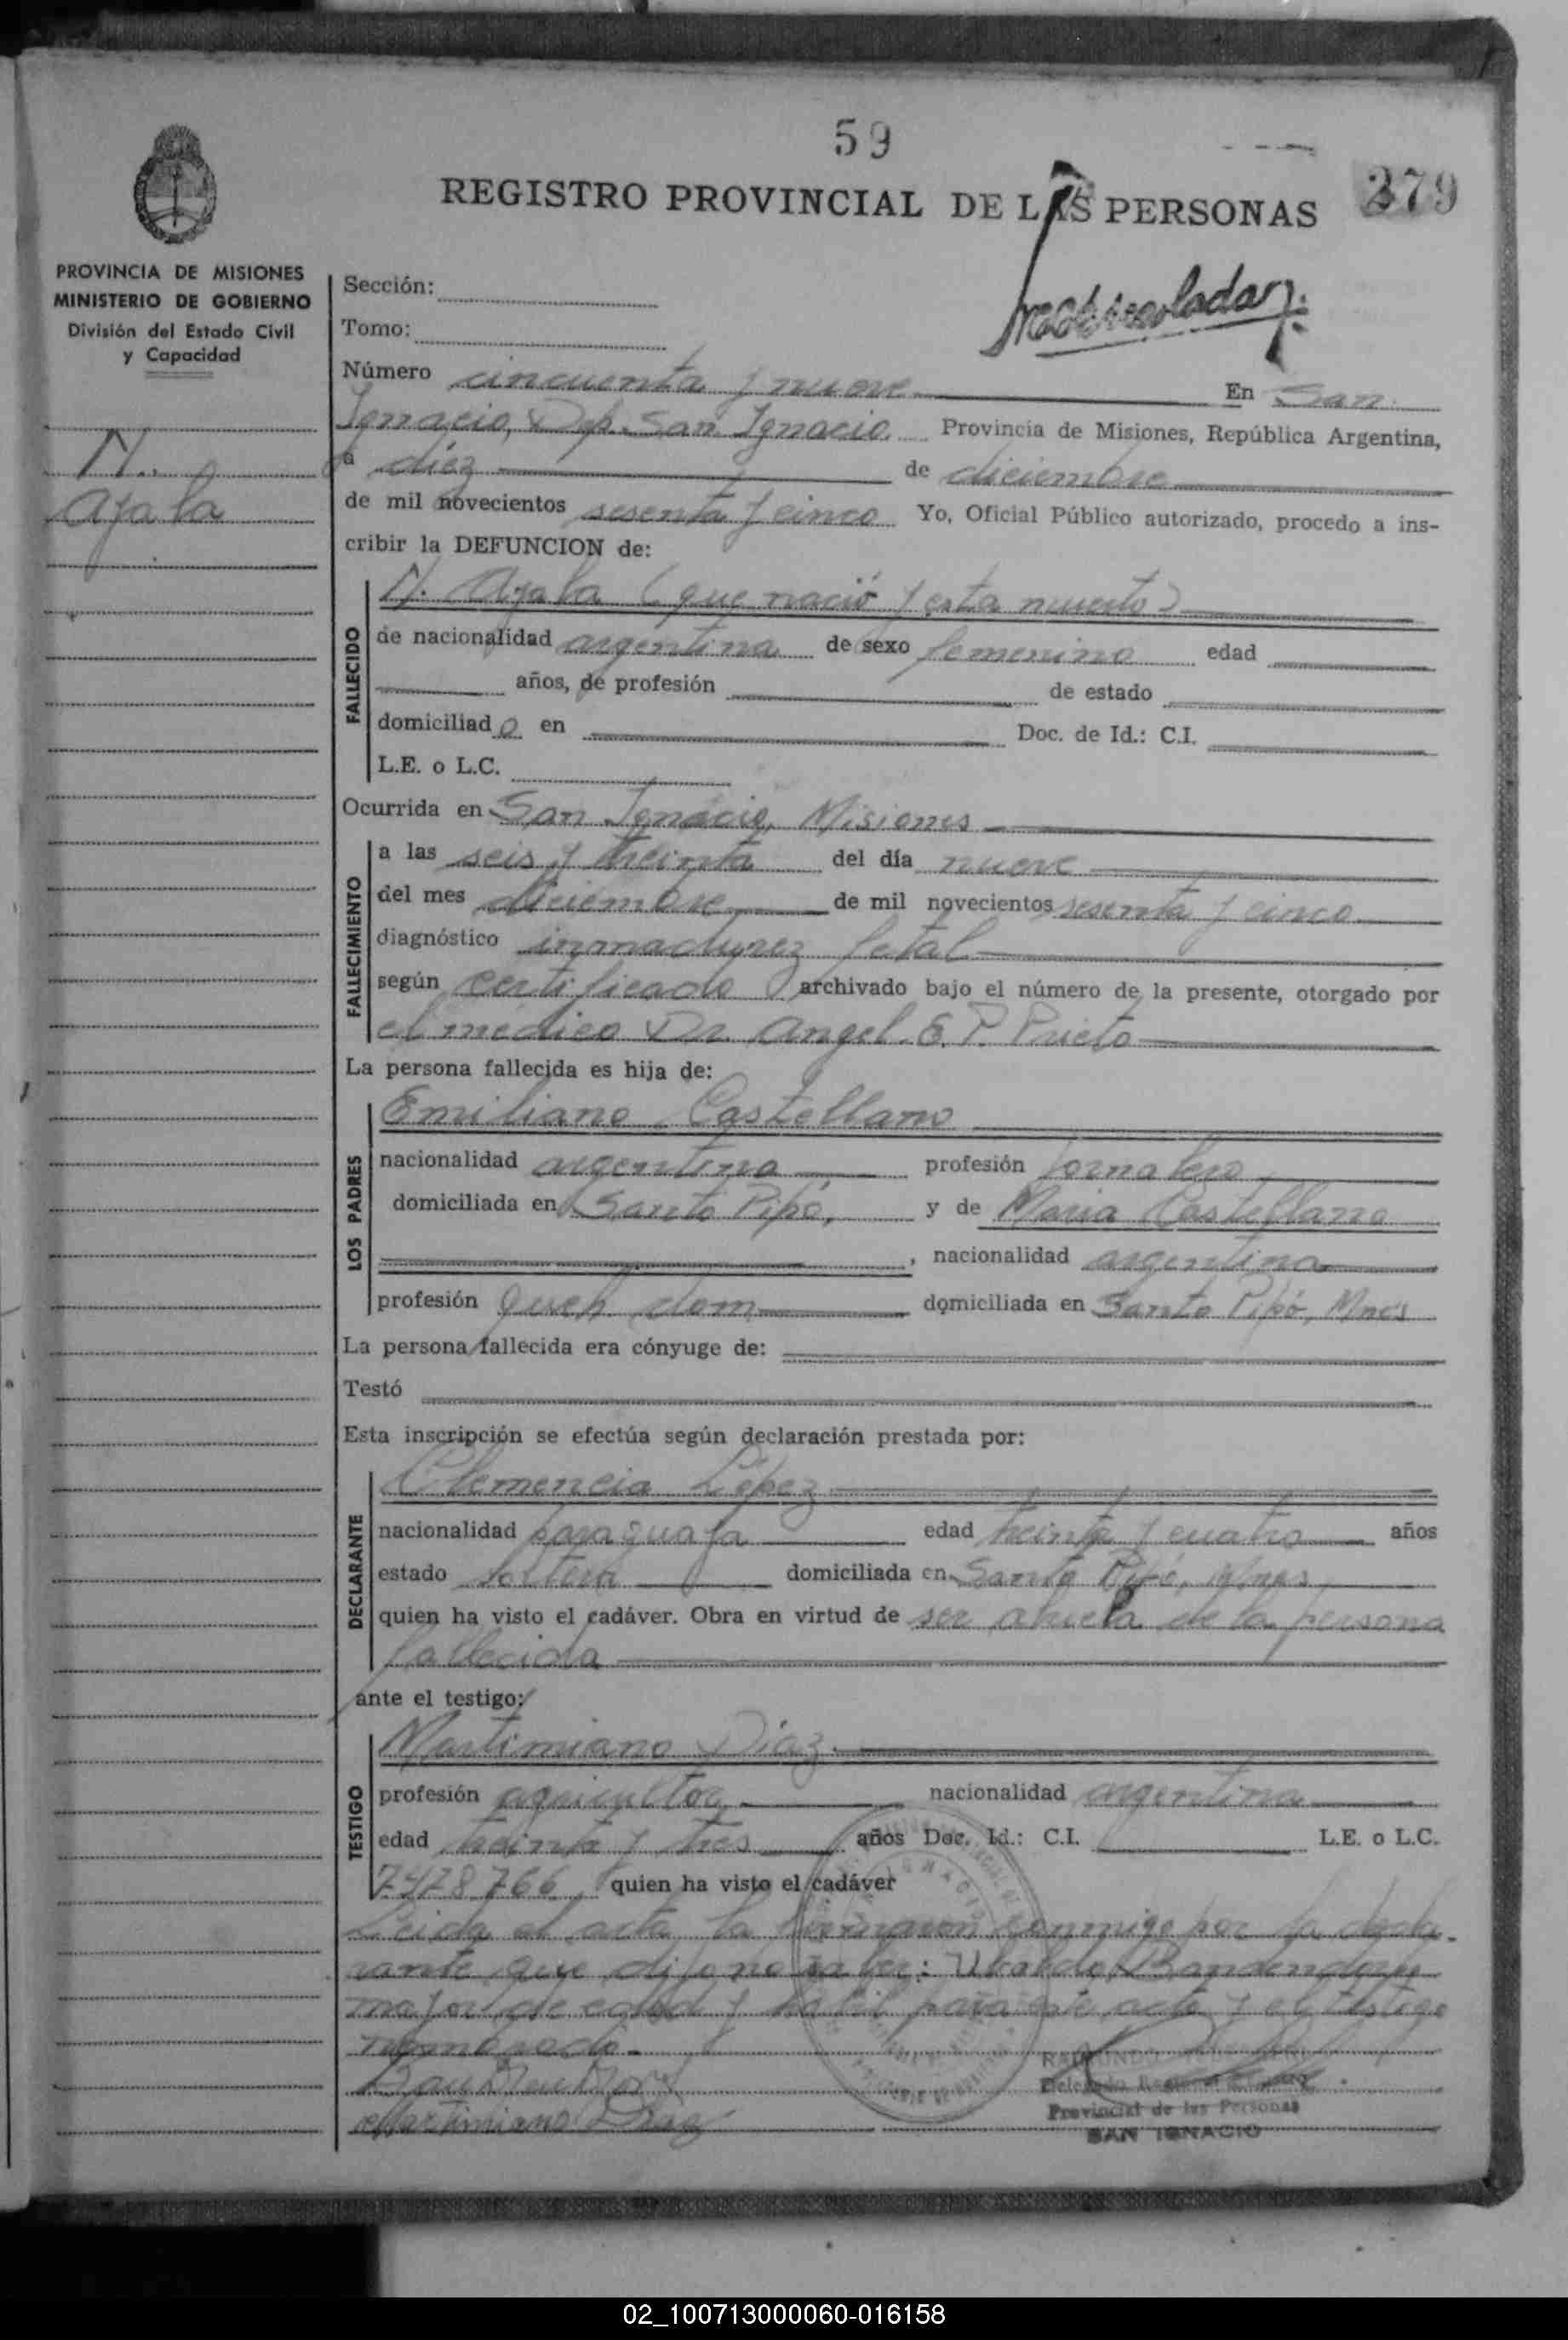 59
REGISTRO PROVINCIAL DE LAS PERSONAS
279
PROVINCIA DE MISIONES
MINISTERIO DE GOBIERNO
División del Estado Civil
y Capacidad
N.
Ayala
Sección:
Tomo:
Número cincuenta y nueve En San
Ignacio, Dep. San Ignacio Provincia de Misiones, República Argentina,
a diéz de diciembre
de mil novecientos sesenta y cinco Yo, Oficial Público autorizado, procedo a ins-
cribir la DEFUNCION de:
FALLECIDO
N. Ayala (que nació y esta muerto)
de nacionalidad argentina de sexo femenino edad
años, de profesión de estado
domiciliad o en Doc. de Id.: C.I.
L.E. o L.C.
Ocurrida en San Ignacio, Misiones
FALLECIMIENTO
a las seis y treinta del día nueve
del mes diciembre de mil novecientos sesenta y cinco
diagnóstico inmadurez fetal
según certificado archivado bajo el número de la presente, otorgado por
el médico Dr. Angel E. P. Prieto
La persona fallecida es hija de:
LOS PADRES
Emiliano Castellano
nacionalidad argentina profesión jornalero
domiciliada en Santo Pipó, y de Maria Castellano
, nacionalidad argentina
profesión queh dom domiciliada en Santo Pipó, Mnes
La persona fallecida era cónyuge de:
Testó
Esta inscripción se efectúa según declaración prestada por:
DECLARANTE
Clemencia López
nacionalidad paraguaya edad treinta y cuatro años
estado soltera domiciliada en Santo Pipó, Mnes
quien ha visto el cadáver. Obra en virtud de ser abuela de la persona
fallecida
ante el testigo:
TESTIGO
Martimiano Díaz
profesión agricultor nacionalidad argentina
edad treinta y tres años Doc. Id.: C.I. L.E. o L.C.
7428766 quien ha visto el cadáver
Leida el acta la firmaron conmigo por la decla-
rante que dijo no saber: Ubaldo
mayor de edad y habil para este acto y el testigo
Martimiano Diaz
Provincial de las Personas
SAN IGNACIO
02_100713000060-016158